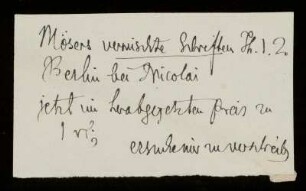 Mösers vermischte Schriften Th. 1. 2.
Berlin bei Nicolai
jetzt im herabgesetzten Preis zu
1 r?
ersuche mir zu verschreib